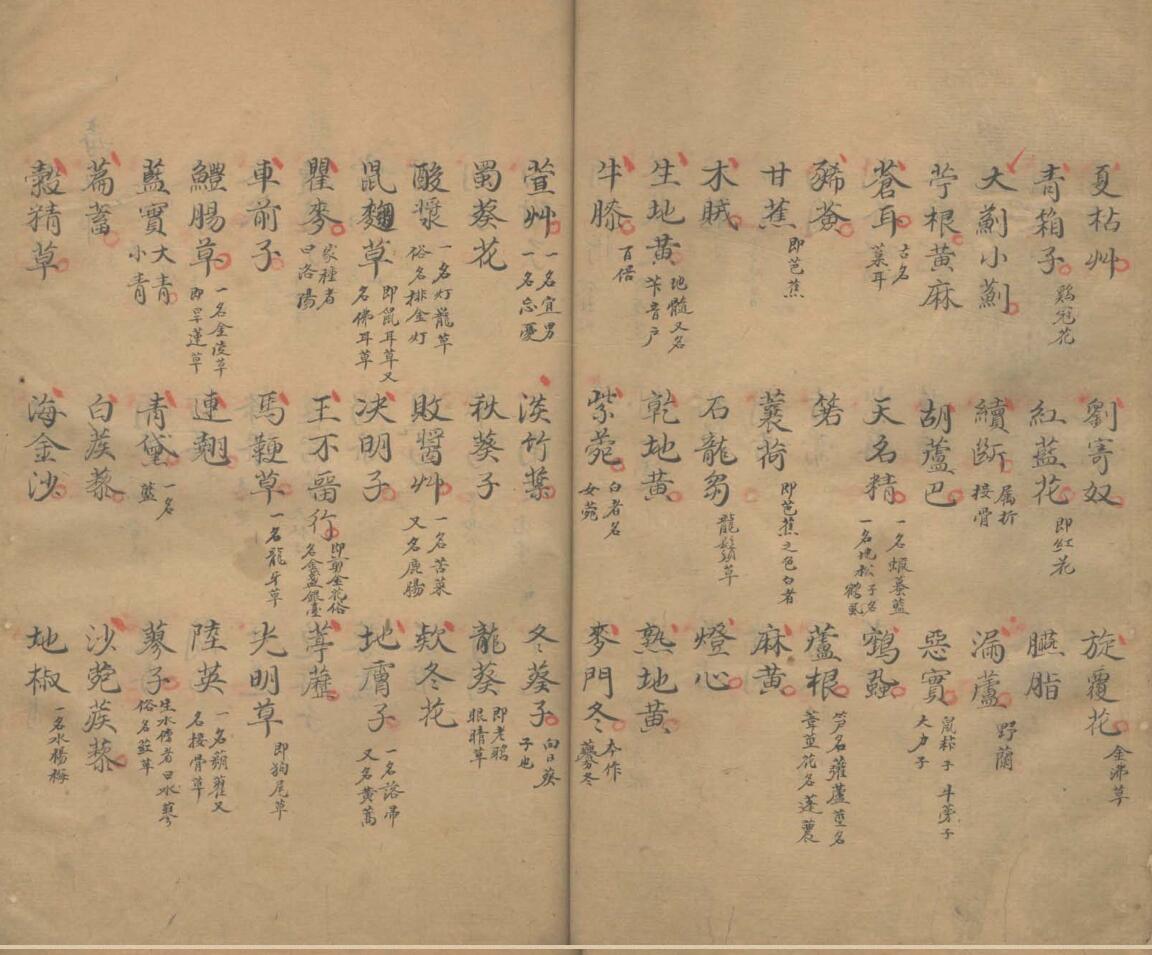 夏枯艸 劉寄奴 旋覆花 金沸草
青箱子 鷄冠花 紅藍花 即紅花 臙脂
大薊小薊 續斷 属折 接骨 漏蘆 野蘭
苧根黄麻 胡蘆巴 惡實 鼠粘子 牛蒡子 大力子
蒼耳 古名 葈耳 天名精 一名蝦蟇藍 一名地松 子名 鶴虱 鶴蝨
豨薟 箬 蘆根 笋名蘿蘆莖名 葦莖花名蓬蕽
甘蕉 即芭蕉 蘘荷 即芭蕉之色白者 麻黄
木賊 石龍芻 龍鬚草 燈心
生地黄 地髓又名 芐音户 乾地黄 熟地黄
牛膝 百倍 紫菀 白者名 女菀 麥門冬 本作 虋冬
萱艸 一名宜男 一名忘憂 淡竹葉 冬葵子 向日葵 子也
蜀葵花 秋葵子 龍葵 即老鴉 眼睛草
酸漿 一名灯龍草 俗名排金灯 敗醬艸 一名苦菜 又名鹿腸 欵冬花
鼠麴草 即鼠耳草又 名佛耳草 决明子 地膚子 一名落帚 又名黄蒿
瞿麥 家種者 曰洛陽 王不畱行 即剪金花俗 名金盞銀臺 葶藶
車前子 馬鞭草 一名龍牙草 光明草 即狗尾草
鱧腸草 一名金陵草 即旱蓮草 連翹 陸英 一名蒴藋又 名接骨草
藍實 大青 小青 青黛 一名 藍 蓼子 生水傍者曰水蓼 俗名
萹蓄 白蒺藜 沙菀蒺藜
穀精草 海金沙 地椒 一名水楊梅